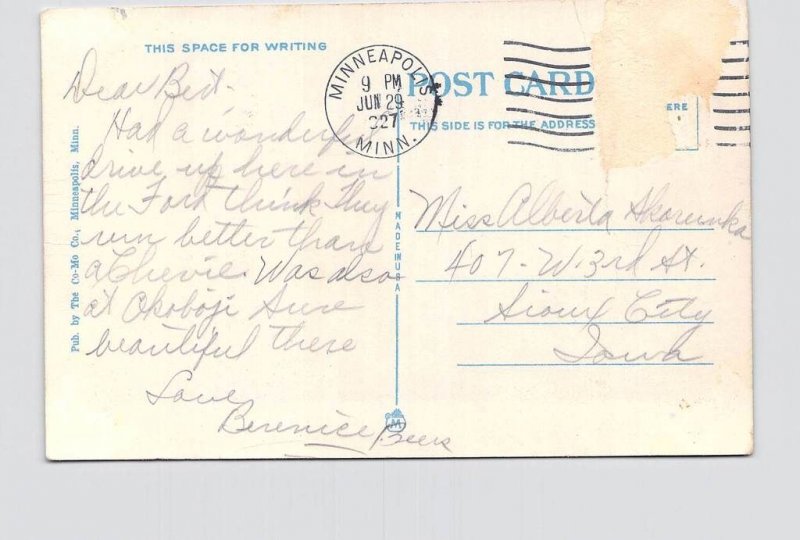 THIS SPACE FOR WRITING
POST CARD
THIS SIDE IS FOR THE ADDRESS
ERE
MINNEAPOLIS
9 PM
JUN 29
927
MINN.
Dear Bert.
Had a wonderful
drive up here in
the Ford think they
run better than
a Chevie. Was also
at Okoboji Sure
beautiful there
Love,
Berenice
Miss Alberta
407-W. 3rd St.
Sioux City
Iowa
MADE IN U.S.A
M
Pub. by The Co-Mo Co., Minneapolis, Minn.